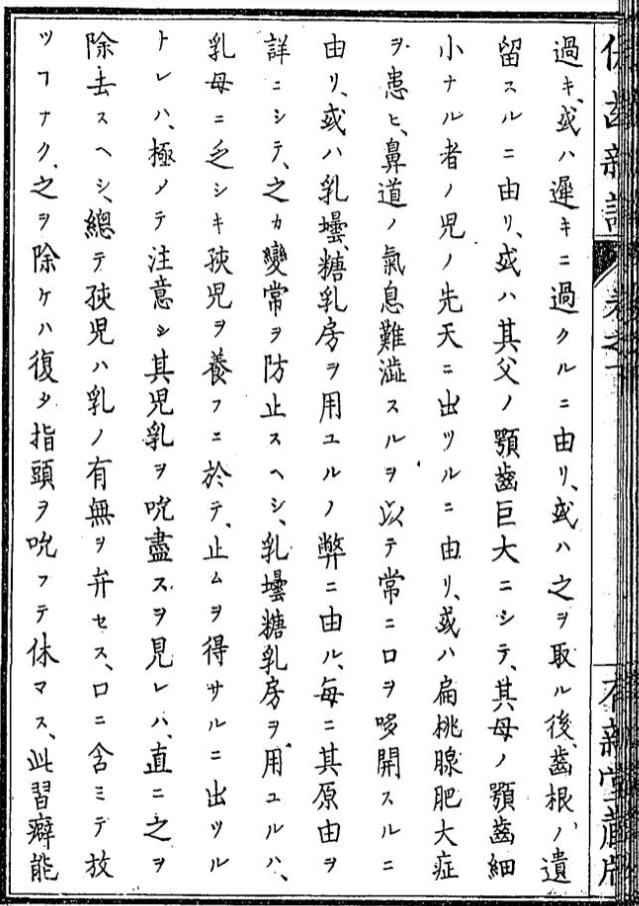 過キ、或ハ遲キニ過クルニ由リ、或ハ之ヲ取ル後、齒根ノ遺
留スルニ由リ、或ハ其父ノ顎齒巨大ニシテ、其母ノ顎齒細
小ナル者ノ兒ノ先天ニ出ツルニ由リ、或ハ扁桃腺肥大症
ヲ患ヒ、鼻道ノ氣息難澁スルヲ以テ常ニ口ヲ哆開スルニ
由リ、或ハ乳壜、糖乳房ヲ用ユルノ弊ニ由ル、毎ニ其原由ヲ
詳ニシテ、之カ變常ヲ防止スヘシ、乳壜糖乳房ヲ用ユルハ、
乳母ニ乏シキ孩兒ヲ養フニ於テ、止ムヲ得サルニ出ツル
トレハ、極メテ注意シ其兒乳ヲ吮盡スヲ見レハ、直ニ之ヲ
除去スヘシ、總テ孩兒ハ乳ノ有無ヲ弁セス、口ニ含ミテ放
ツヿナク、之ヲ除ケハ復タ指頭ヲ吮フテ休マス、此習癖能